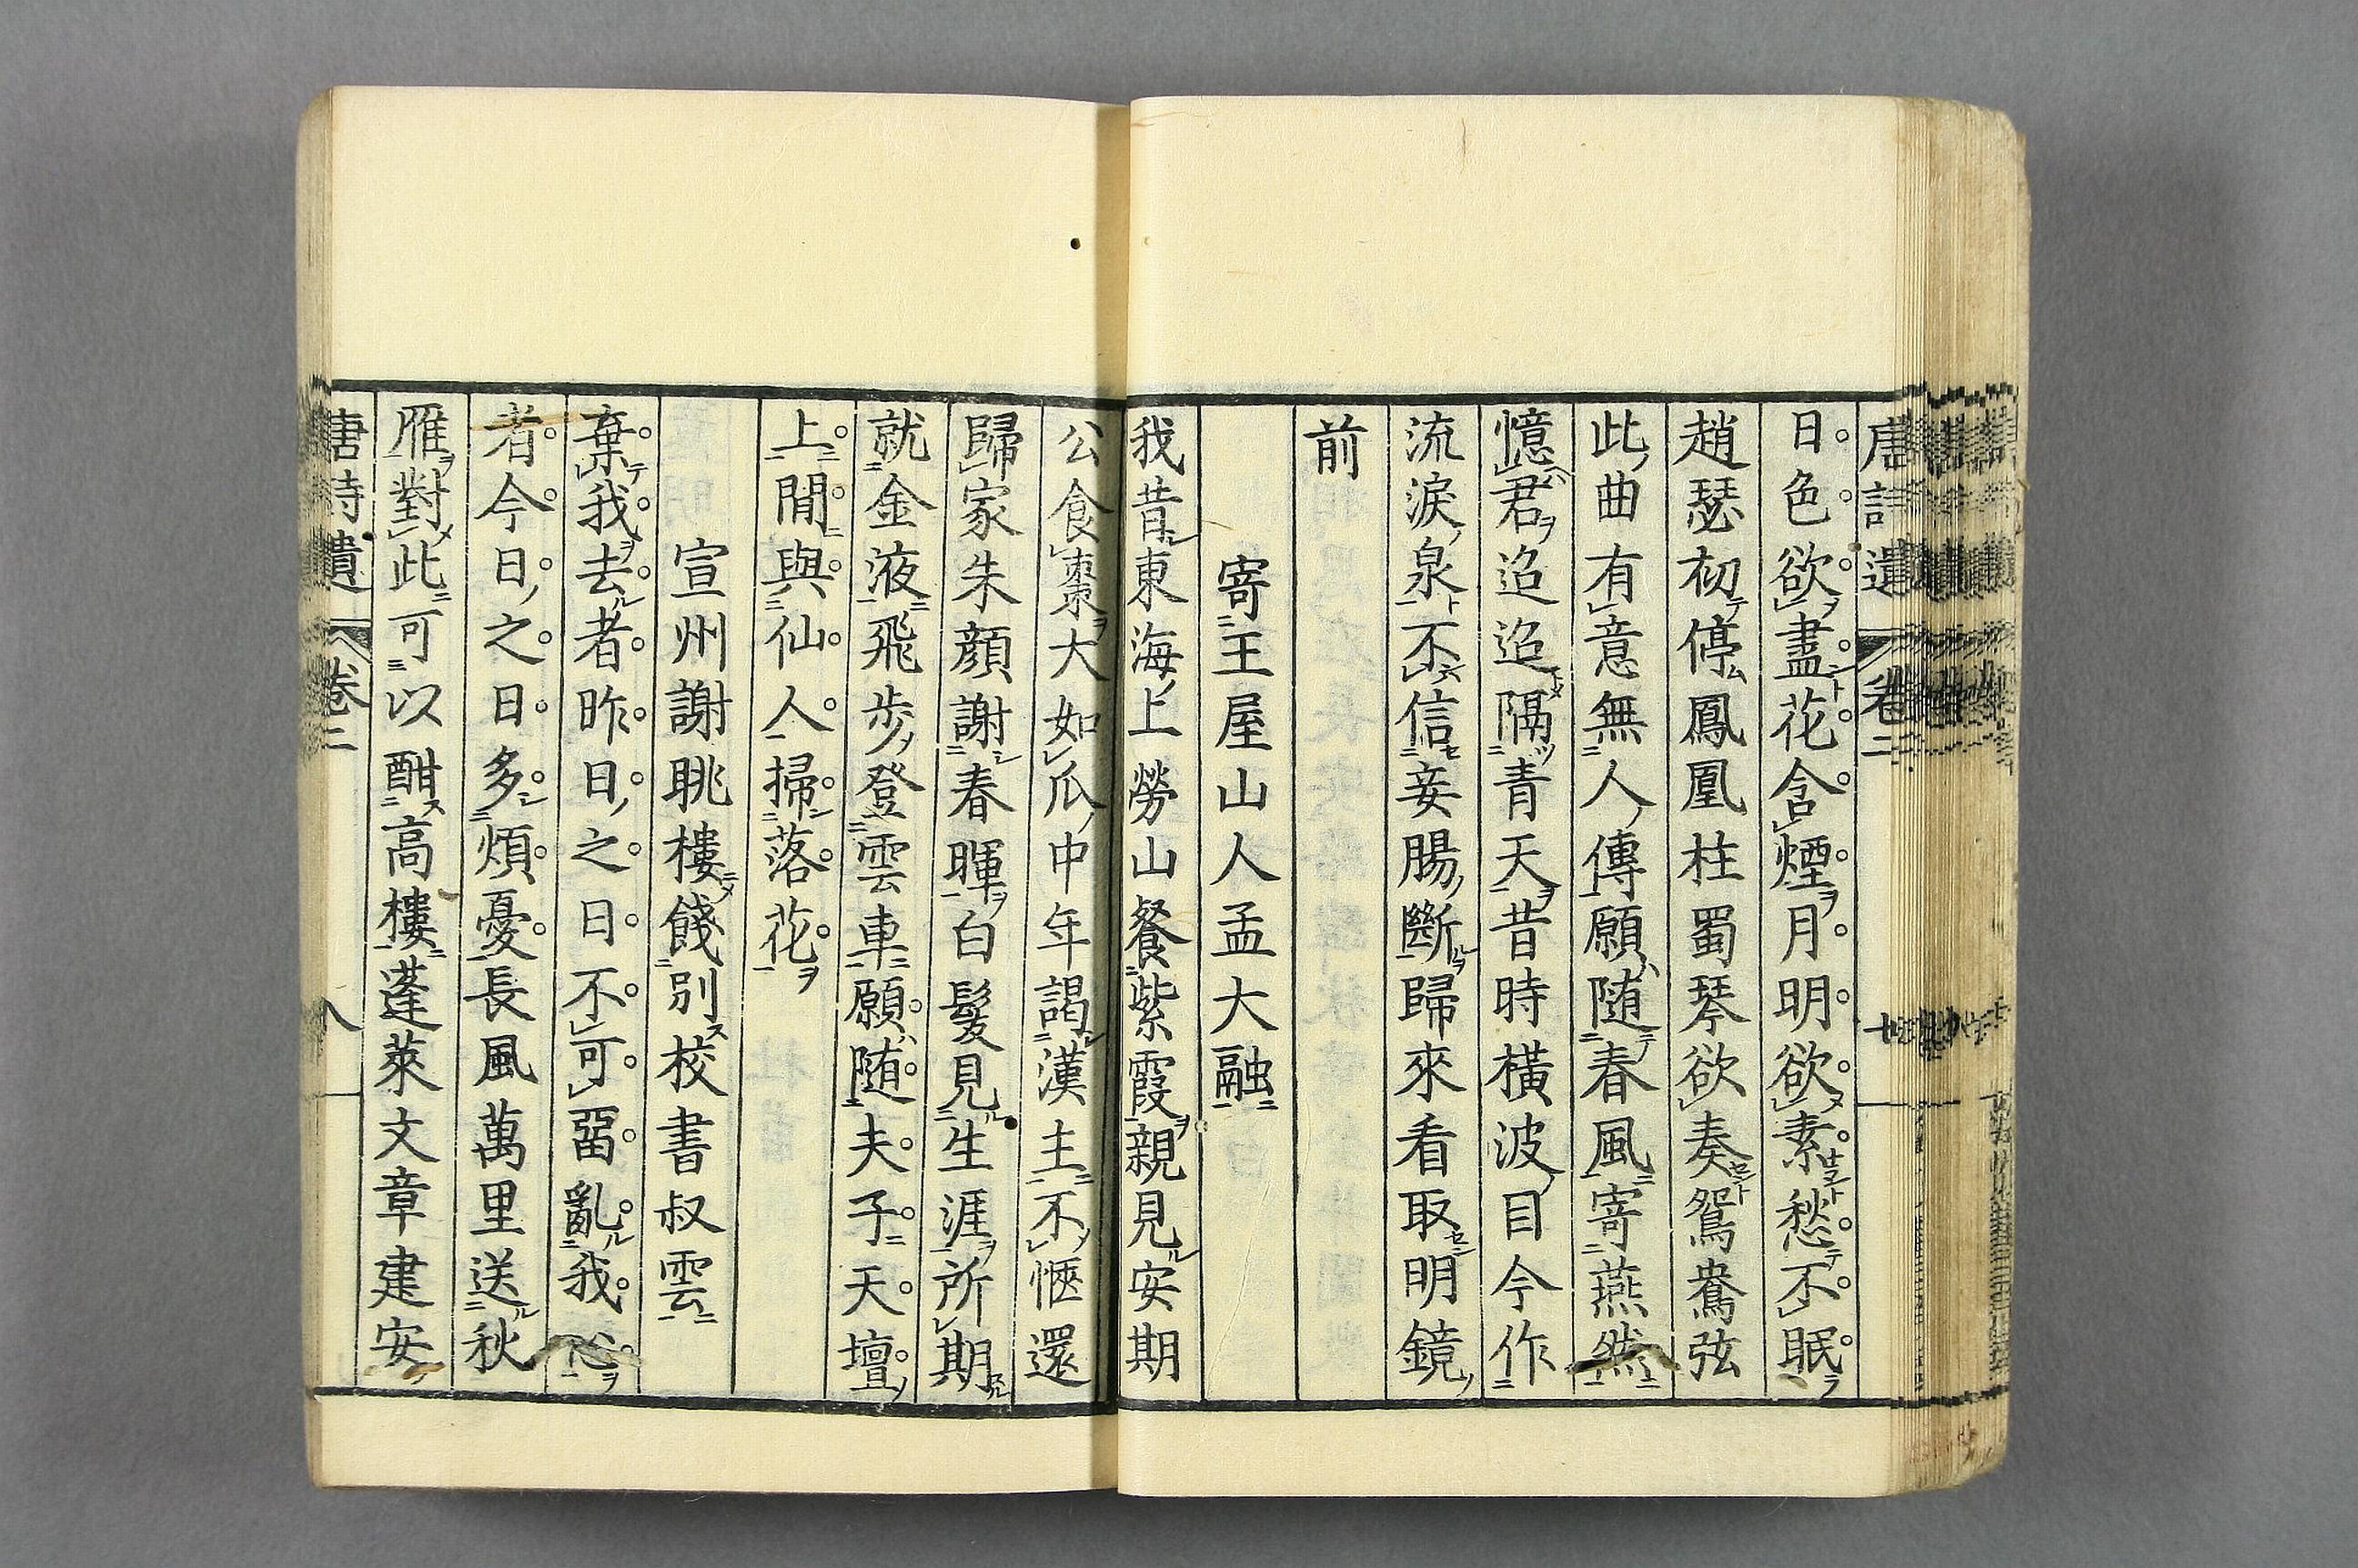 唐詩遺 卷二
日色欲盡花含煙月明欲素愁不眠
趙瑟初停鳳凰柱蜀琴欲奏鴛鴦弦
此曲有意無人傳願随春風寄燕然
憶君迢迢隔青天昔時橫波目今作
流淚泉不信妾腸斷歸來看取明鏡
前
寄王屋山人孟大融
我昔東海上勞山餐紫霞親見安期
公食棗大如瓜中年謁漢主不愜還
歸家朱顔謝春暉白髮見生涯所期
就金液飛步登雲車願随夫子天壇
上閒與仙人掃落花
宣州謝眺樓餞別校書叔雲
棄我去者昨日之日不可留亂我心
者今日之日多煩憂長風萬里送秋
雁對此可以酣高樓蓬萊文章建安
唐詩遺 卷二 八